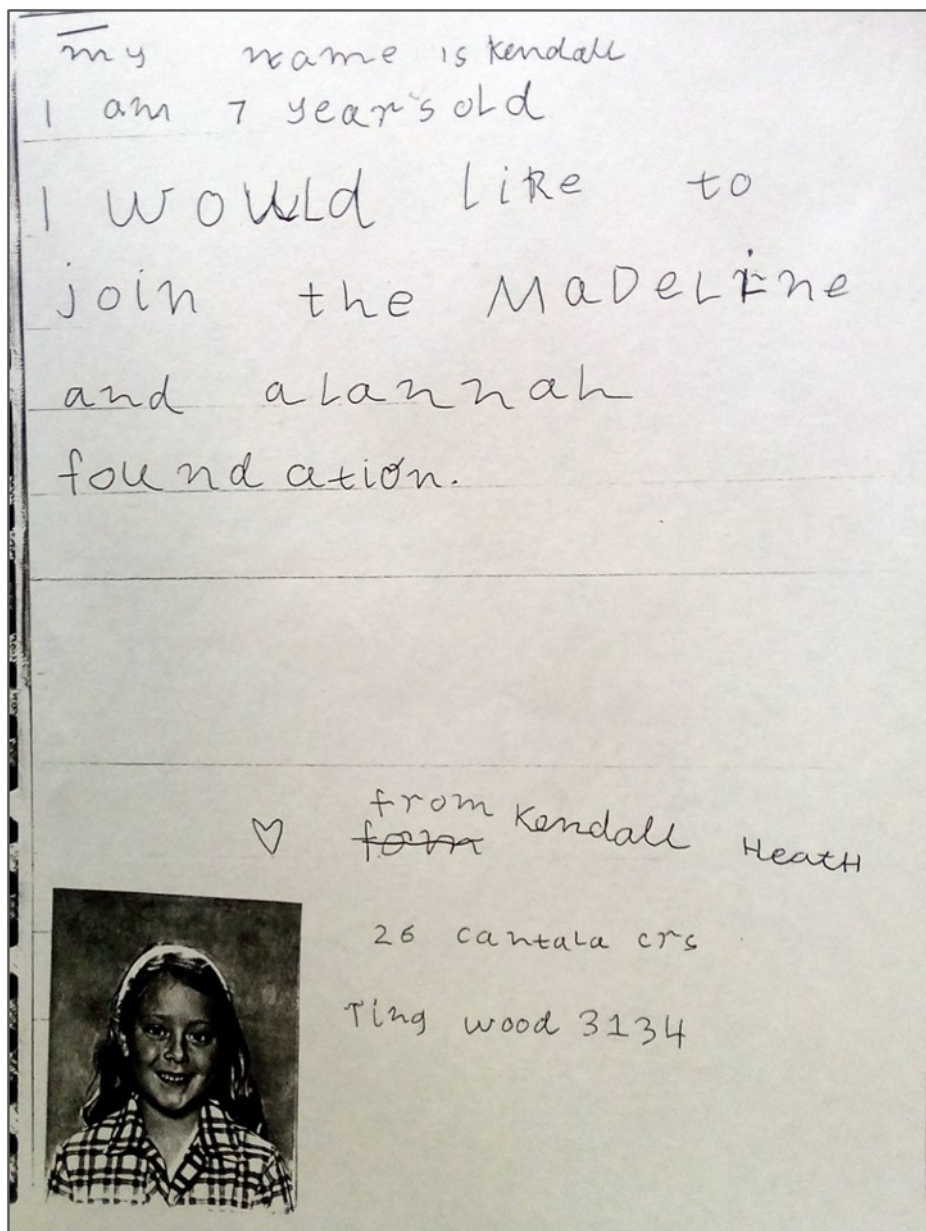 my name is Kendall
I am 7 year's old
I would like to
join the MaDeLine
and alannah
foundation.
from Kendall Heath
form
26 cantala crs
Ting wood 3134